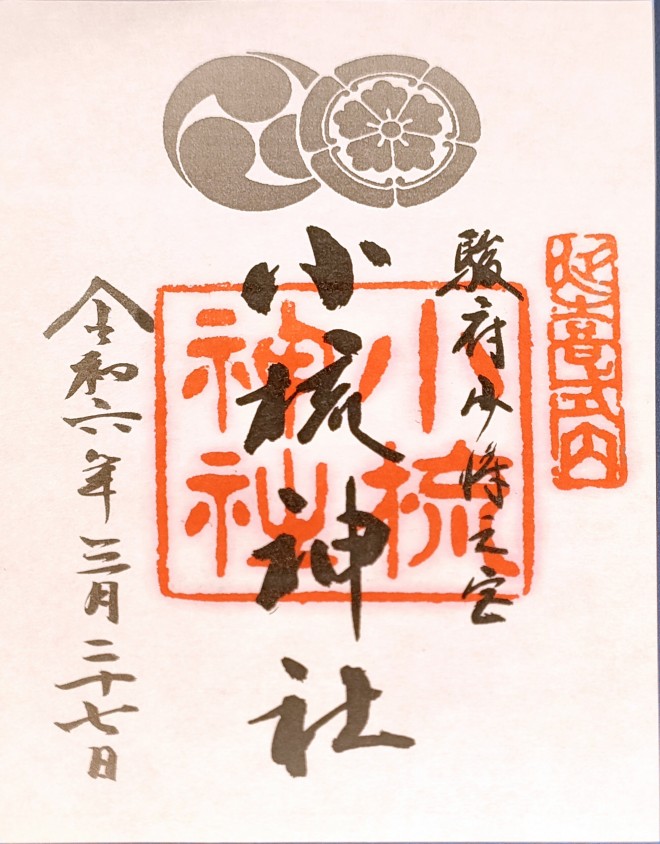 延喜式内
駿府少将之宮
小梳神社
小梳
神社
令和六年三月二十七日